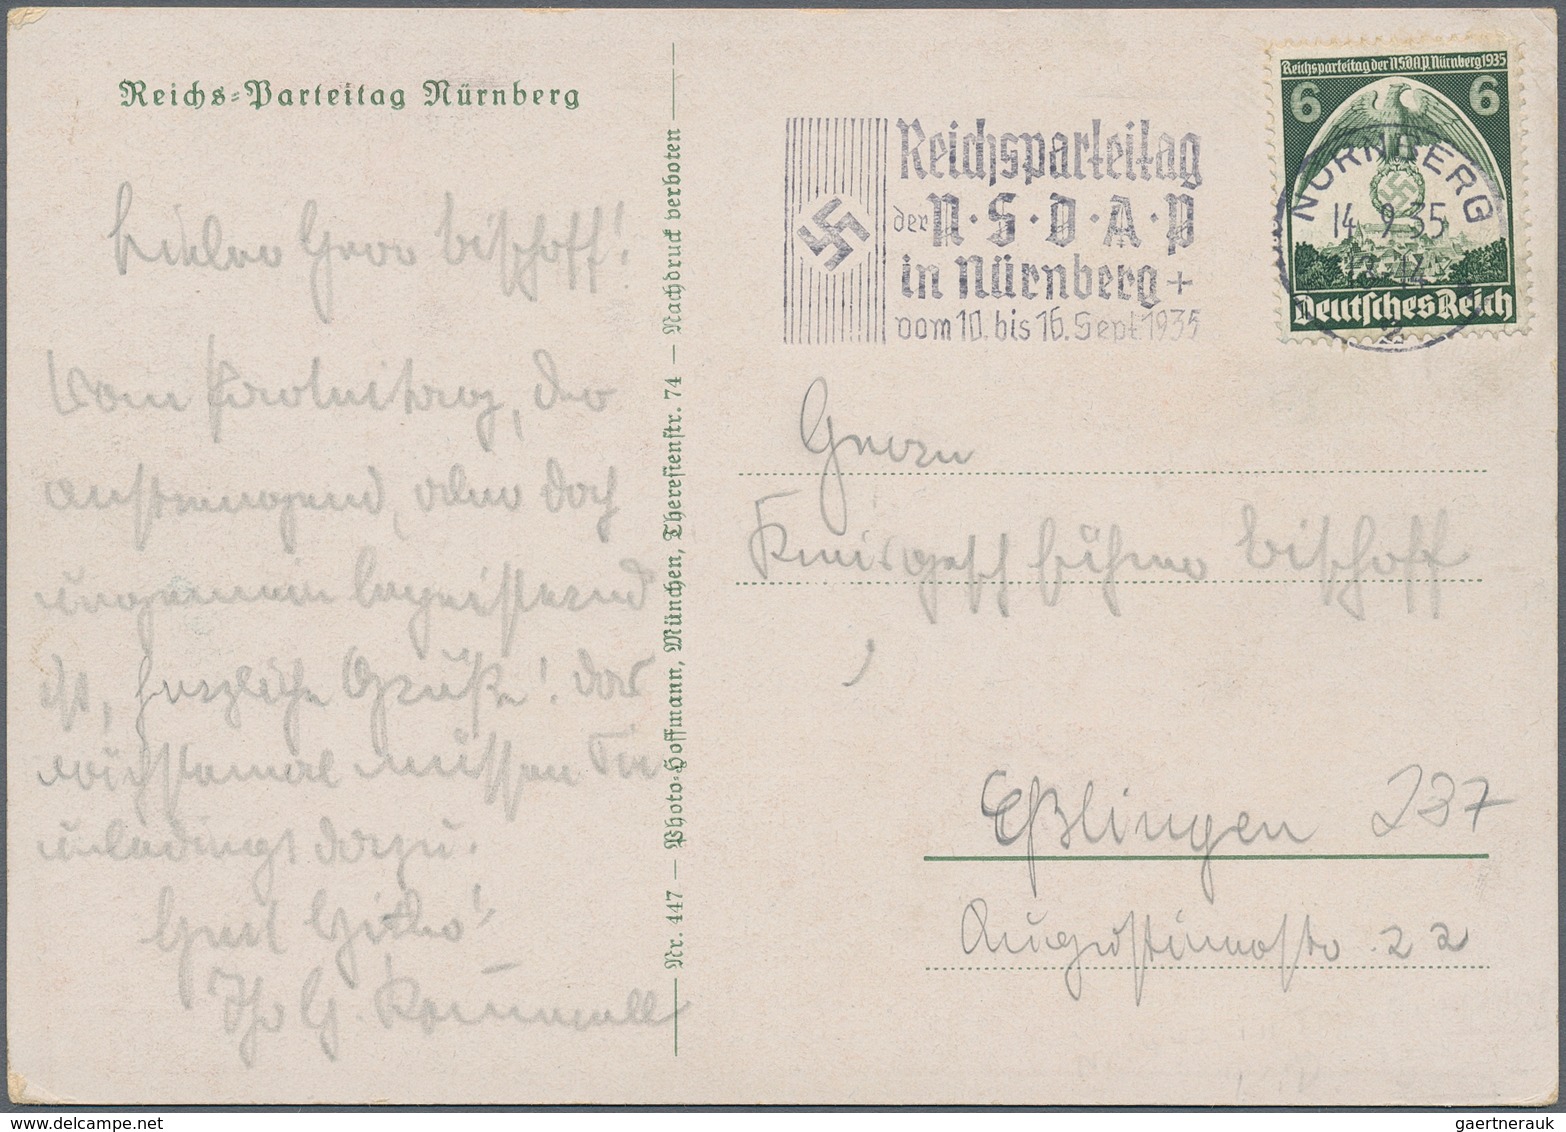 Reichs-Parteitag Nürnberg
Lieber Herr Bischoff!
Vom Parteitag, der
anstrengend, aber doch
ungemein begeisternd
ist, herzliche Grüße! Das
nächstemal müssen Sie
unbedingt dazu.
Heil Hitler!
Ihr G.
Nr. 447 — Photo-Hoffmann, München, Theresienstr. 74 — Nachdruck verboten
Reichsparteitag
der N·S·D·A·P
in Nürnberg +
vom 10. bis 16. Sept. 1935
Reichsparteitag der N.S.D.A.P. Nürnberg 1935
6 6
Deutsches Reich
NÜRNBERG
14.9.35
2
Herrn
Kreisgeschführer Bischoff
Eßlingen
Augustinerstr. 22
gaertnerauk